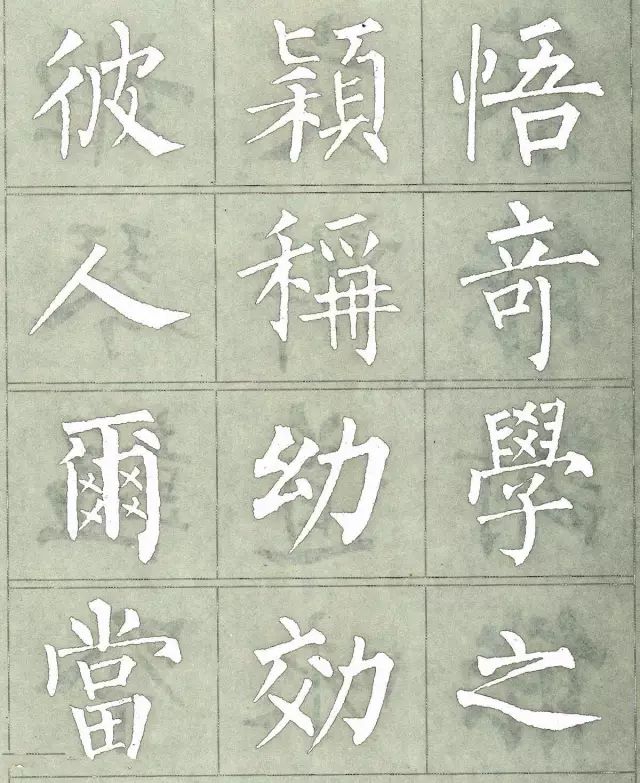 悟竒學之
穎稱幼効
彼人爾當